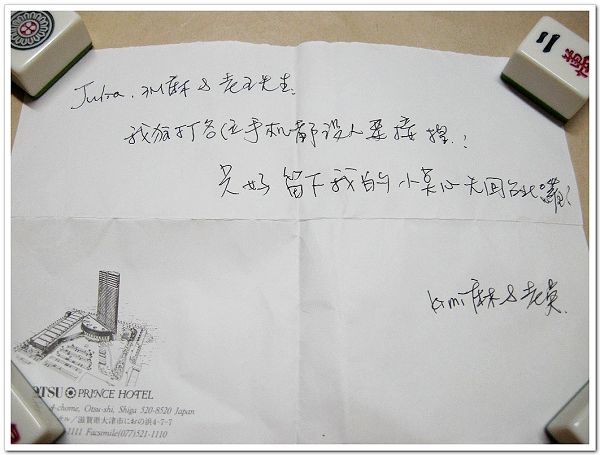 Julia, 孔麻 & 老王先生:
我狂打各位手机都沒人要接捏!
只好留下我的小莫心先回台北囉!
kimi麻 & 老莫.
OTSU PRINCE HOTEL
-chome, Otsu-shi, Shiga 520-8520 Japan
テル/滋賀県大津市におの浜4-7-7
-1111 Facsimile(077)521-1110